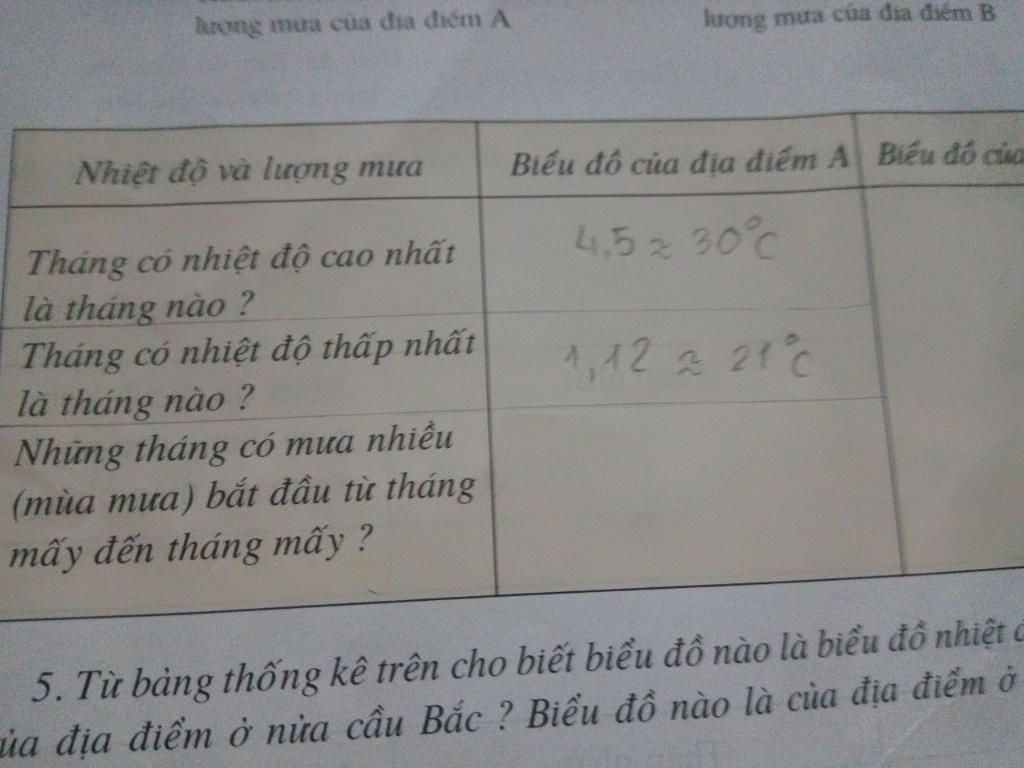 lượng mưa của địa điểm A
lượng mưa của địa điểm B
Nhiệt độ và lượng mưa
Biểu đồ của địa điểm A
Biểu đồ của
Tháng có nhiệt độ cao nhất
là tháng nào ?
4,5 ≈ 30°C
Tháng có nhiệt độ thấp nhất
là tháng nào ?
1,12 ≈ 21°C
Những tháng có mưa nhiều
(mùa mưa) bắt đầu từ tháng
mấy đến tháng mấy ?
5. Từ bảng thống kê trên cho biết biểu đồ nào là biểu đồ nhiệt
của địa điểm ở nửa cầu Bắc ? Biểu đồ nào là của địa điểm ở